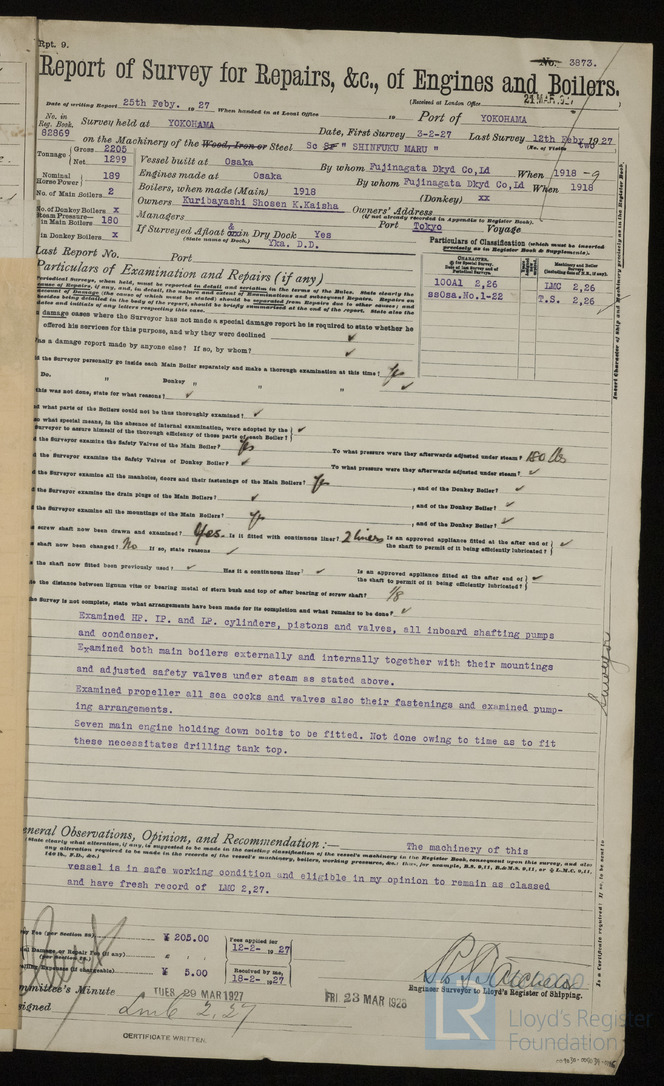 Rpt. 9.
No. 3873.
Report of Survey for Repairs, &c., of Engines and Boilers.
Date of writing Report 25th Feby. 19 27 When handed in at Local Office 19 (Received at London Office 21 MAR. 927 )
Port of YOKOHAMA
No. in Reg. Book. 82869 Survey held at YOKOHAMA Date, First Survey 3-2-27 Last Survey 12th Feby 19 27
(No. of Visits two
on the Machinery of the Wood, Iron or Steel Sc Sr " SHINFUKU MARU "
Tonnage Gross 2205
Net. 1299
Vessel built at Osaka By whom Fujinagata Dkyd Co,Ld When 1918 -9
Nominal Horse Power 189 Engines made at Osaka By whom Fujinagata Dkyd Co,Ld When 1918
No. of Main Boilers 2 Boilers, when made (Main) 1918 (Donkey) xx
No. of Donkey Boilers x Owners Kuribayashi Shosen K.Kaisha Owners' Address
(if not already recorded in Appendix to Register Book).
Steam Pressure— in Main Boilers 180 Managers Port Tokyo Voyage
in Donkey Boilers x If Surveyed Afloat & in Dry Dock Yes
(State name of Dock.) Yka. D.D.
Last Report No. Port
Particulars of Classification (which must be inserted precisely as in Register Book & Supplements).
100A1 2,26 LMC 2,26
ssOsa.No.1-22 T.S. 2,26
Particulars of Examination and Repairs (if any)
damage cases where the Surveyor has not made a special damage report he is required to state whether he
offered his services for this purpose, and why they were declined ✓
as a damage report made by anyone else? If so, by whom? ✓
the Surveyor personally go inside each Main Boiler separately and make a thorough examination at this time? Yes
Do. " Donkey " " " ✓
this was not done, state for what reasons? ✓
what parts of the Boilers could not be thus thoroughly examined? ✓
what special means, in the absence of internal examination, were adopted by the
Surveyor to assure himself of the thorough efficiency of those parts of each Boiler? ✓
the Surveyor examine the Safety Valves of the Main Boiler? Yes To what pressure were they afterwards adjusted under steam? 180 lbs
the Surveyor examine the Safety Valves of Donkey Boiler? ✓ To what pressure were they afterwards adjusted under steam? ✓
the Surveyor examine all the manholes, doors and their fastenings of the Main Boilers? Yes , and of the Donkey Boiler? ✓
the Surveyor examine the drain plugs of the Main Boilers? ✓ , and of the Donkey Boiler? ✓
the Surveyor examine all the mountings of the Main Boilers? Yes , and of the Donkey Boiler? ✓
screw shaft now been drawn and examined? Yes. Is it fitted with continuous liner? 2 liners Is an approved appliance fitted at the after end of
the shaft to permit of it being efficiently lubricated? ✓
shaft now been changed? No If so, state reasons ✓
the shaft now fitted been previously used? ✓ Has it a continuous liner? ✓ Is an approved appliance fitted at the after end of
the shaft to permit of it being efficiently lubricated? ✓
the distance between lignum vitæ or bearing metal of stern bush and top of after bearing of screw shaft? 1/8
the Survey is not complete, state what arrangements have been made for its completion and what remains to be done? ✓
Examined HP. IP. and LP. cylinders, pistons and valves, all inboard shafting pumps
and condenser.
Examined both main boilers externally and internally together with their mountings
and adjusted safety valves under steam as stated above.
Examined propeller all sea cocks and valves also their fastenings and examined pump-
ing arrangements.
Seven main engine holding down bolts to be fitted. Not done owing to time as to fit
these necessitates drilling tank top.
General Observations, Opinion, and Recommendation:— The machinery of this
vessel is in safe working condition and eligible in my opinion to remain as classed
and have fresh record of LMC 2,27.
Fee (per Section 29) ¥ 205.00 Fees applied for 12-2- 19 27
Damage or Repair Fee (if any)
(per Section 29.)
Expenses (if chargeable) ¥ 5.00 Received by me, 18-2- 19 27
Engineer Surveyor to Lloyd's Register of Shipping.
Committee's Minute TUES 29 MAR 1927 FRI 23 MAR 1928
Assigned Lmc 2,27
CERTIFICATE WRITTEN
Surveyor
LR Lloyd's Register Foundation